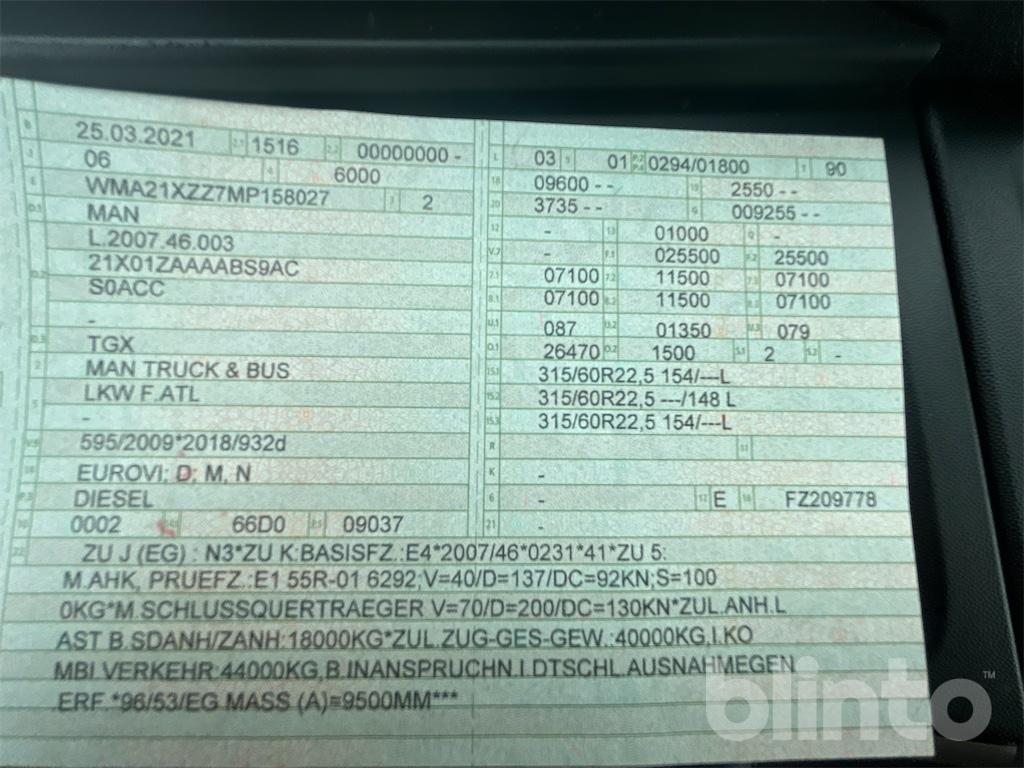 25.03.2021 2.1 1516 2.2 00000000 -
06 4 6000
WMA21XZZ7MP158027 3 2
MAN
L.2007.46.003
21X01ZAAAABS9AC
S0ACC
-
TGX
MAN TRUCK & BUS
LKW F.ATL
-
595/2009*2018/932d
EUROVI; D; M, N
DIESEL
0002 66D0 09037
L 03 9 01 P.2 P.4 0294/01800 T 90
18 09600 - - 19 2550 - -
20 3735 - - G 009255 - -
12 - 13 01000 Q -
V.7 - F.1 025500 F.2 25500
7.1 07100 7.2 11500 7.3 07100
8.1 07100 8.2 11500 8.3 07100
U.1 087 U.2 01350 U.3 079
O.1 26470 O.2 1500 S.1 2 S.2 -
15.1 315/60R22,5 154/---L
15.2 315/60R22,5 ---/148 L
15.3 315/60R22,5 154/---L
R 11
K -
6 - 17 E 16 FZ209778
21 -
22 ZU J (EG) : N3*ZU K:BASISFZ.:E4*2007/46*0231*41*ZU 5:
M.AHK, PRUEFZ.:E1 55R-01 6292;V=40/D=137/DC=92KN;S=100
0KG*M.SCHLUSSQUERTRAEGER V=70/D=200/DC=130KN*ZUL.ANH.L
AST B.SDANH/ZANH:18000KG*ZUL.ZUG-GES-GEW.:40000KG,I.KO
MBI.VERKEHR:44000KG,B.INANSPRUCHN.I.DTSCHL.AUSNAHMEGEN
.ERF.*96/53/EG MASS (A)=9500MM***
blinto™